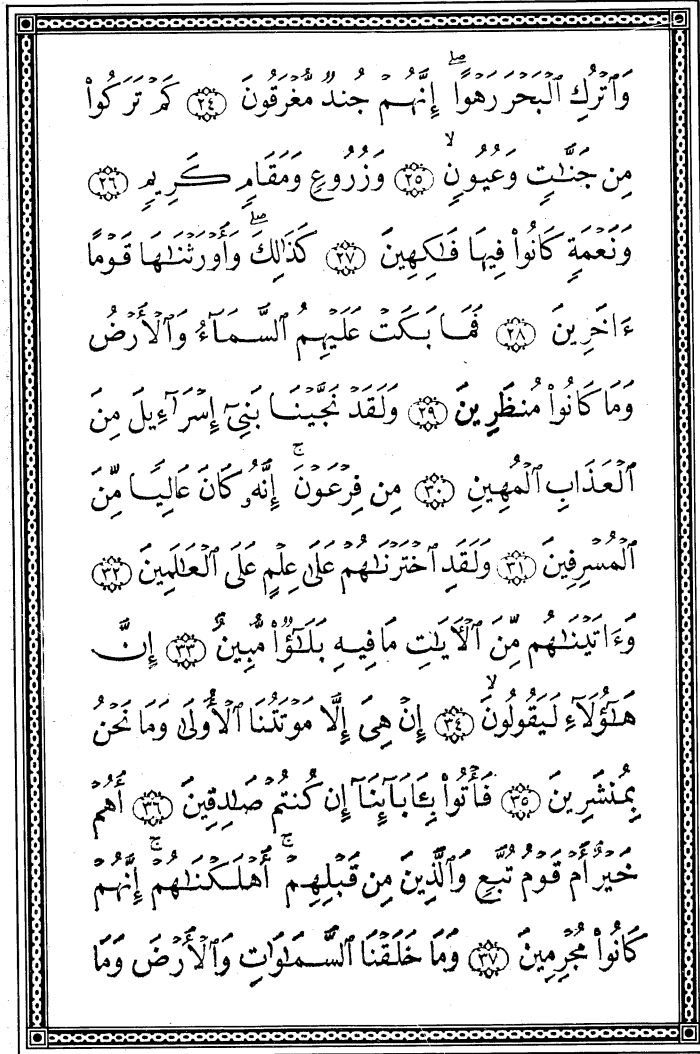 وَٱتْرُكِ ٱلْبَحْرَ رَهْوًاۖ إِنَّهُمْ جُندٌ مُّغْرَقُونَ ﴿٢٤﴾ كَمْ تَرَكُوا۟
مِن جَنَّٰتٍ وَعُيُونٍۙ ﴿٢٥﴾ وَزُرُوعٍ وَمَقَامٍ كَرِيمٍ ﴿٢٦﴾
وَنَعْمَةٍ كَانُوا۟ فِيهَا فَٰكِهِينَ ﴿٢٧﴾ كَذَٰلِكَۖ وَأَوْرَثْنَٰهَا قَوْمًا
ءَاخَرِينَ ﴿٢٨﴾ فَمَا بَكَتْ عَلَيْهِمُ ٱلسَّمَآءُ وَٱلْأَرْضُ
وَمَا كَانُوا۟ مُنظَرِينَ ﴿٢٩﴾ وَلَقَدْ نَجَّيْنَا بَنِىٓ إِسْرَٰٓءِيلَ مِنَ
ٱلْعَذَابِ ٱلْمُهِينِ ﴿٣٠﴾ مِن فِرْعَوْنَۚ إِنَّهُۥ كَانَ عَالِيًا مِّنَ
ٱلْمُسْرِفِينَ ﴿٣١﴾ وَلَقَدِ ٱخْتَرْنَٰهُمْ عَلَىٰ عِلْمٍ عَلَى ٱلْعَٰلَمِينَ ﴿٣٢﴾
وَءَاتَيْنَٰهُم مِّنَ ٱلْءَايَٰتِ مَا فِيهِ بَلَٰٓؤٌا۟ مُّبِينٌ ﴿٣٣﴾ إِنَّ
هَٰٓؤُلَآءِ لَيَقُولُونَۙ ﴿٣٤﴾ إِنْ هِىَ إِلَّا مَوْتَتُنَا ٱلْأُولَىٰ وَمَا نَحْنُ
بِمُنشَرِينَ ﴿٣٥﴾ فَأْتُوا۟ بِـَٔابَآئِنَآ إِن كُنتُمْ صَٰدِقِينَ ﴿٣٦﴾ أَهُمْ
خَيْرٌ أَمْ قَوْمُ تُبَّعٍ وَٱلَّذِينَ مِن قَبْلِهِمْۚ أَهْلَكْنَٰهُمْۚ إِنَّهُمْ
كَانُوا۟ مُجْرِمِينَ ﴿٣٧﴾ وَمَا خَلَقْنَا ٱلسَّمَٰوَٰتِ وَٱلْأَرْضَ وَمَا